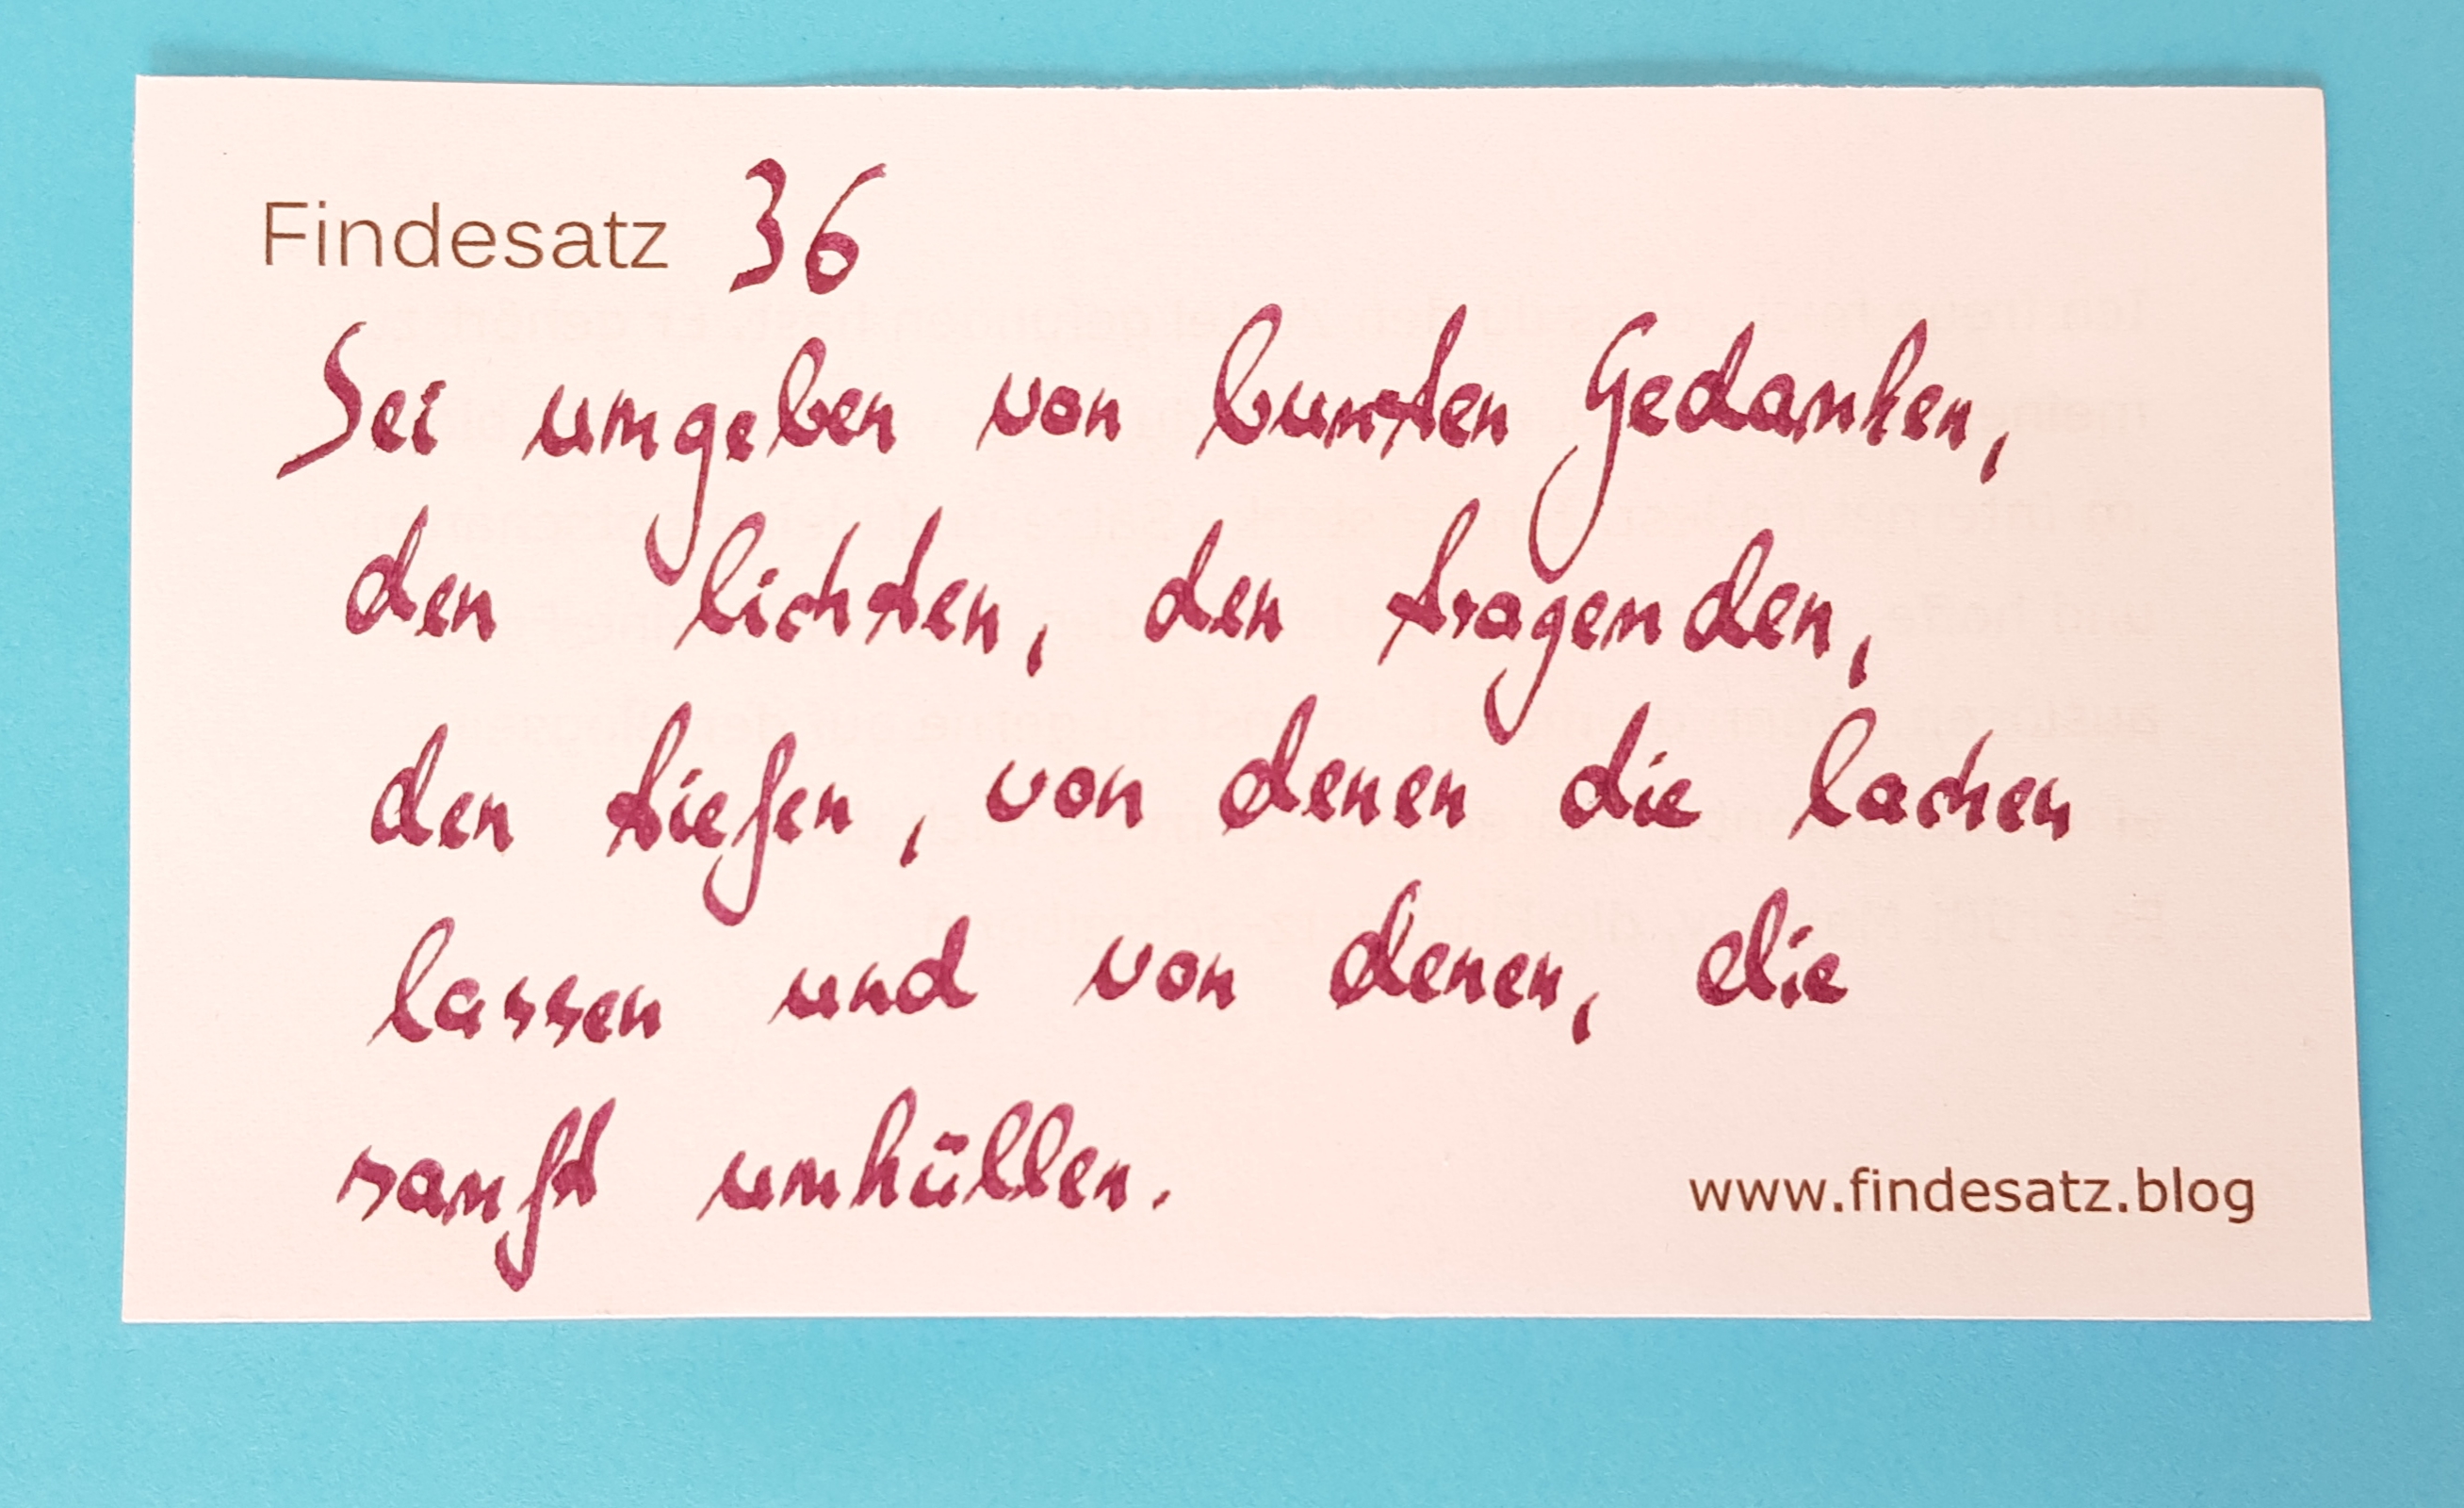 Findesatz 36
Sei umgeben von bunten Gedanken,
den lichten, den tragenden,
den tiefen, von denen die lachen
lassen und von denen, die
sanft umhüllen.
www.findesatz.blog